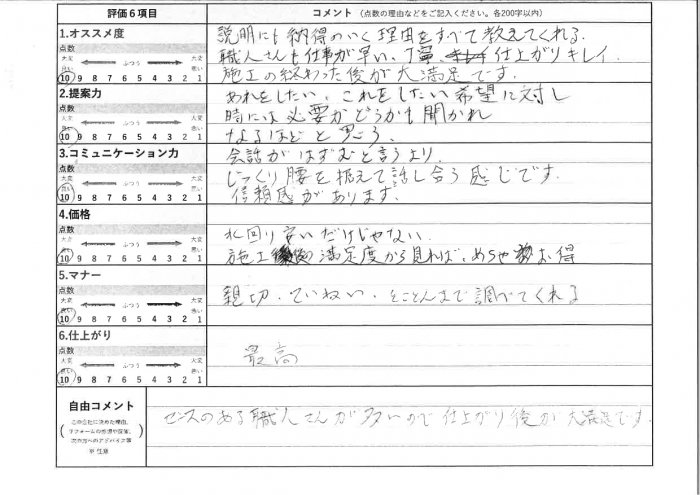 評価6項目
コメント（点数の理由などをご記入ください。各200字以内）
1.オススメ度
点数
大変良い ふつう 大変悪い
10 9 8 7 6 5 4 3 2 1
説明にも納得のいく理由をすべて教えてくれる.
職人さんも仕事が早い、丁寧 仕上がりキレイ.
施工の終わった後が大満足です.
2.提案力
点数
大変良い ふつう 大変悪い
10 9 8 7 6 5 4 3 2 1
あれをしたい、これをしたい希望に対し
時には必要かどうかも聞かれ
なるほどと思ころ、
3.コミュニケーション力
点数
大変良い ふつう 大変悪い
10 9 8 7 6 5 4 3 2 1
会話がはずむと言うより.
じっくり腰を据えて話し合う感じです.
信頼感があります.
4.価格
点数
大変良い ふつう 大変悪い
10 9 8 7 6 5 4 3 2 1
水回り安いだけじゃない.
施工後の満足度から見れば、めちゃお得
5.マナー
点数
大変良い ふつう 大変悪い
10 9 8 7 6 5 4 3 2 1
親切、ていねい、とことんまで調べてくれる
6.仕上がり
点数
大変良い ふつう 大変悪い
10 9 8 7 6 5 4 3 2 1
最高
自由コメント
この会社に決めた理由、
リフォームの感想や提案、
次の方へのアドバイス等
※任意
センスのある職人さんが多いので仕上がり後が大満足です.